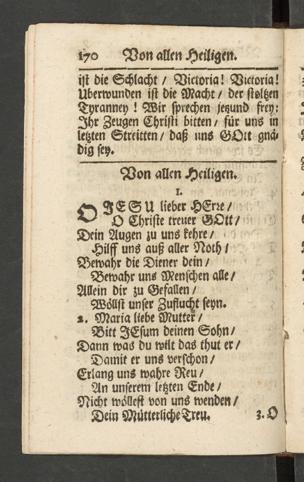 170 Von allen Heiligen.
ist die Schlacht / Victoria! Victoria!
Uberwunden ist die Macht / der stoltzen
Tyranney! Wir sprechen jetzund frey:
Ihr Zeugen Christi bitten / für uns in
letzten Streitten / daß uns GOtt gnä-
dig sey.
Von allen Heiligen.
1.
O JESU lieber HErre /
O Christe treuer GOtt /
Dein Augen zu uns kehre /
Hilff uns auß aller Noth /
Bewahr die Diener dein /
Bewahr uns Menschen alle /
Allein dir zu Gefallen /
Wöllst unser Zuflucht seyn.
2. Maria liebe Mutter /
Bitt JEsum deinen Sohn /
Dann was du wilt das thut er /
Damit er uns verschon /
Erlang uns wahre Reu /
An unserem letzten Ende /
Nicht wöllest von uns wenden /
Dein Mütterliche Treu. 3. O